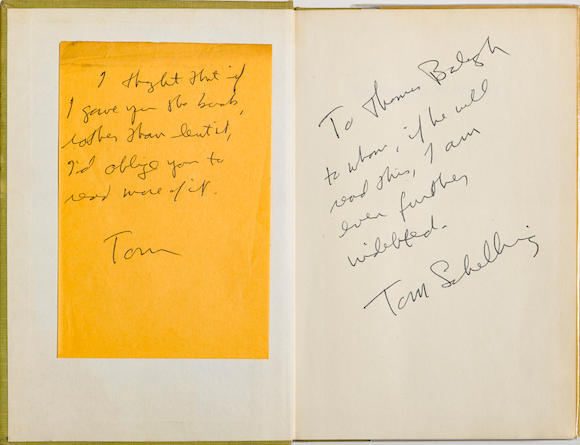 I thought that if
I gave you the book,
rather than lent it,
I'd oblige you to
read more of it.
Tom
To Thomas Balogh
to whom, if he will
read this, I am
even further
indebted.
Tom Schelling